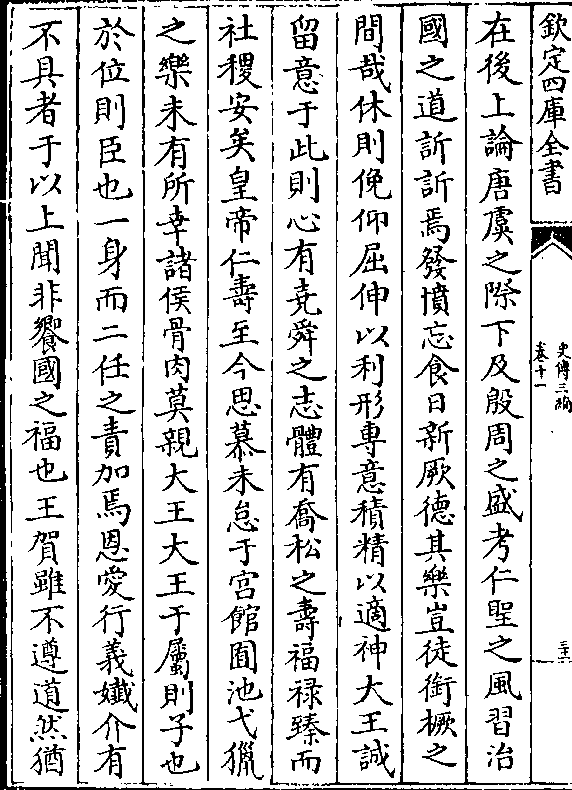 欽定四庫全書
史傳三編
卷十一
三十
在後上論唐虞之際下及殷周之盛考仁聖之風習治
國之道訢訢焉發憤忘食日新厥德其樂豈徒銜橛之
間哉休則俛仰屈伸以利形專意積精以適神大王誠
留意于此則心有堯舜之志體有喬松之壽福祿臻而
社稷安矣皇帝仁壽至今思慕未怠于宮館囿池弋獵
之樂未有所幸諸侯骨肉莫親大王大王于屬則子也
於位則臣也一身而二任之責加焉恩愛行義孅介有
不具者于以上聞非饗國之福也王賀雖不遵道然猶